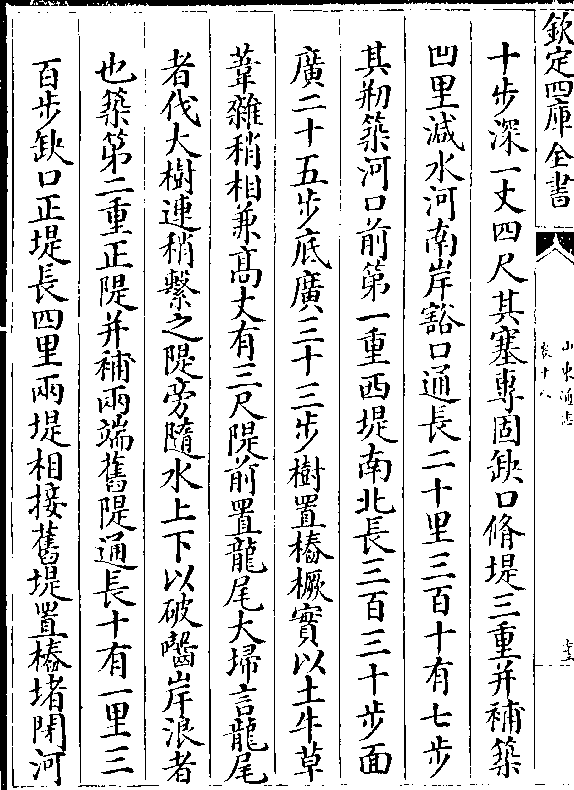 欽定四庫全書
山東通志
卷十八
十步深一丈四尺其塞專固缺口脩堤三重并補築
凹里減水河南岸豁口通長二十里三百十有七步
其剏築河口前第一重西堤南北長三百三十步面
廣二十五步底廣三十三步樹置樁橛實以土牛草
葦雜稍相兼髙丈有三尺隄前置龍尾大埽言龍尾
者伐大樹連稍繫之隄旁隨水上下以破嚙岸浪者
也築第二重正隄并補兩端舊隄通長十有一里三
百步缺口正堤長四里兩堤相接舊堤置樁堵閉河